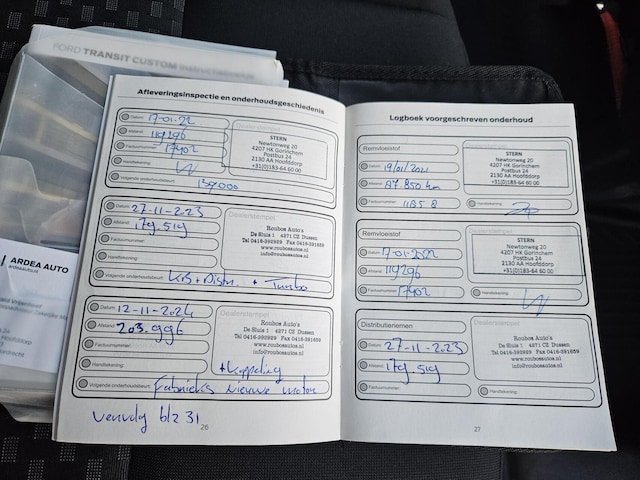 FORD TRANSIT CUSTOM Instructieboekje
ARDEA AUTO
Afleveringsinspectie en onderhoudsgeschiedenis
Datum: 17-01-22
Afstand: 119296
Factuurnummer: 17402
Handtekening:
Volgende onderhoudsbeurt: 139000
STERN
Newtonweg 20
4207 HK Gorinchem
Postbus 24
2130 AA Hoofddorp
+31(0)183-64 60 00
Datum: 27-11-2023
Afstand: 179.519
Factuurnummer:
Handtekening:
Volgende onderhoudsbeurt: + Turbo
Dealerstempel
Roubos Auto's
De Sluis 1 4271 CZ Dussen
Tel 0416-392929 Fax 0416-391859
www.roubosautos.nl
info@roubosautos.nl
Datum: 12-11-2024
Afstand: 203.996
Factuurnummer:
Handtekening:
Volgende onderhoudsbeurt: Fabrieks nieuwe motor
Dealerstempel
Roubos Auto's
De Sluis 1 4271 CZ Dussen
Tel 0416-392929 Fax 0416-391859
www.roubosautos.nl
info@roubosautos.nl
+ Koppeling
vervolg blz 31
26
Logboek voorgeschreven onderhoud
Remvloeistof
Datum: 19/01/2021
Afstand: 87.850 km
Factuurnummer: 1185 8
Handtekening:
STERN
Newtonweg 20
4207 HK Gorinchem
Postbus 24
2130 AA Hoofddorp
+31(0)183-64 60 00
Remvloeistof
Datum: 17-01-2022
Afstand: 119296
Factuurnummer: 17402
Handtekening:
STERN
Newtonweg 20
4207 HK Gorinchem
Postbus 24
2130 AA Hoofddorp
+31(0)183-64 60 00
Distributieriemen
Datum: 27-11-2023
Afstand: 179.519
Factuurnummer:
Handtekening:
Dealerstempel
Roubos Auto's
De Sluis 1 4271 CZ Dussen
Tel 0416-392929 Fax 0416-391859
www.roubosautos.nl
info@roubosautos.nl
27